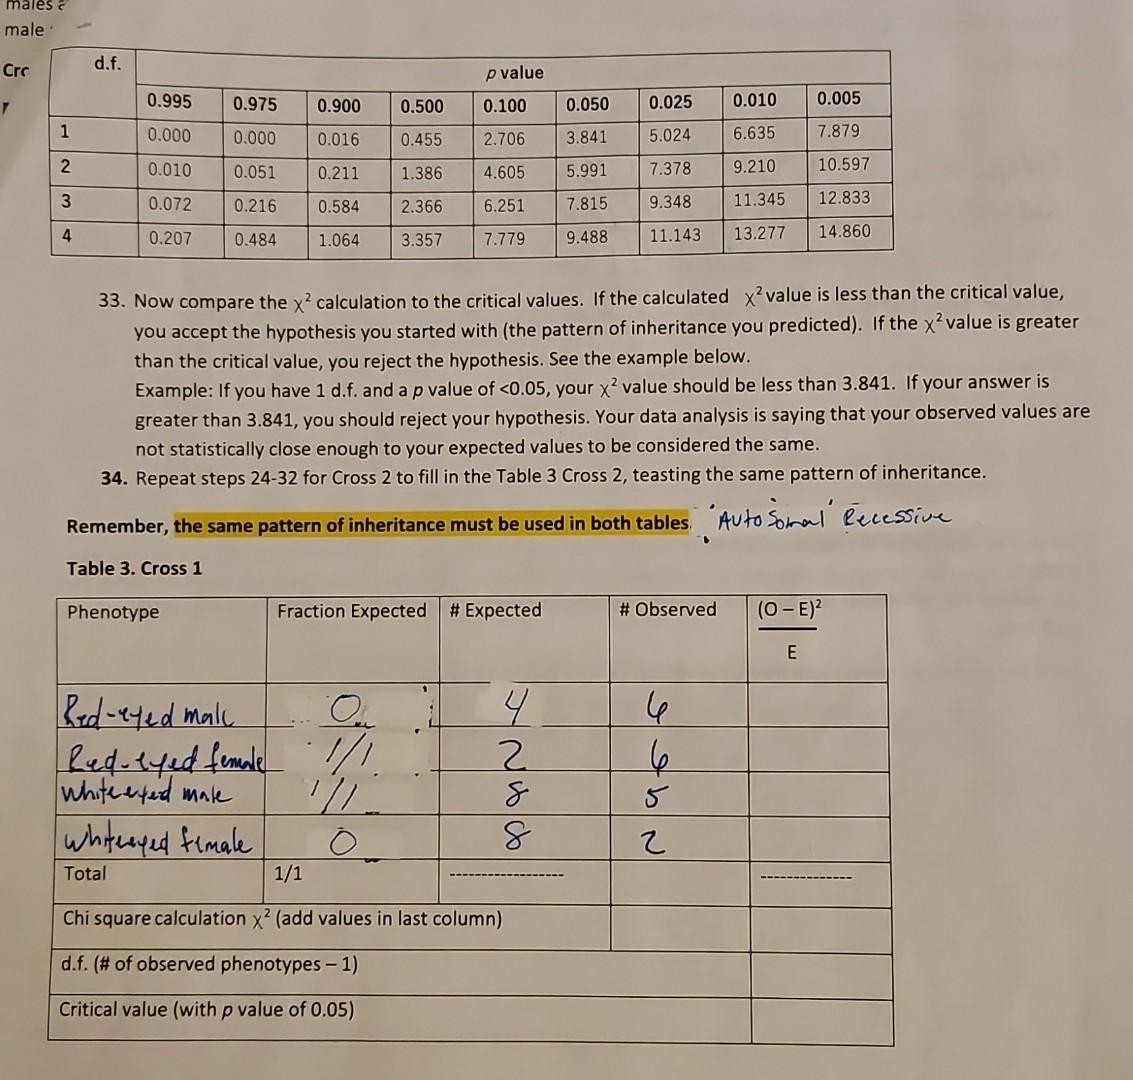 males
male
d.f.
p value
0.995 0.975 0.900 0.500 0.100 0.050 0.025 0.010 0.005
1 0.000 0.000 0.016 0.455 2.706 3.841 5.024 6.635 7.879
2 0.010 0.051 0.211 1.386 4.605 5.991 7.378 9.210 10.597
3 0.072 0.216 0.584 2.366 6.251 7.815 9.348 11.345 12.833
4 0.207 0.484 1.064 3.357 7.779 9.488 11.143 13.277 14.860
33. Now compare the χ² calculation to the critical values. If the calculated χ² value is less than the critical value,
you accept the hypothesis you started with (the pattern of inheritance you predicted). If the χ² value is greater
than the critical value, you reject the hypothesis. See the example below.
Example: If you have 1 d.f. and a p value of <0.05, your χ² value should be less than 3.841. If your answer is
greater than 3.841, you should reject your hypothesis. Your data analysis is saying that your observed values are
not statistically close enough to your expected values to be considered the same.
34. Repeat steps 24-32 for Cross 2 to fill in the Table 3 Cross 2, teasting the same pattern of inheritance.
Remember, the same pattern of inheritance must be used in both tables. 'AutoSomal' Recessive
Table 3. Cross 1
Phenotype Fraction Expected # Expected # Observed (O – E)²
E
Red-eyed male 0 4 6
Red-eyed female 1/1 2 6
White eyed male 1/1 8 5
Whiteeyed female 0 8 2
Total 1/1 ------------------ --------------
Chi square calculation χ² (add values in last column)
d.f. (# of observed phenotypes – 1)
Critical value (with p value of 0.05)